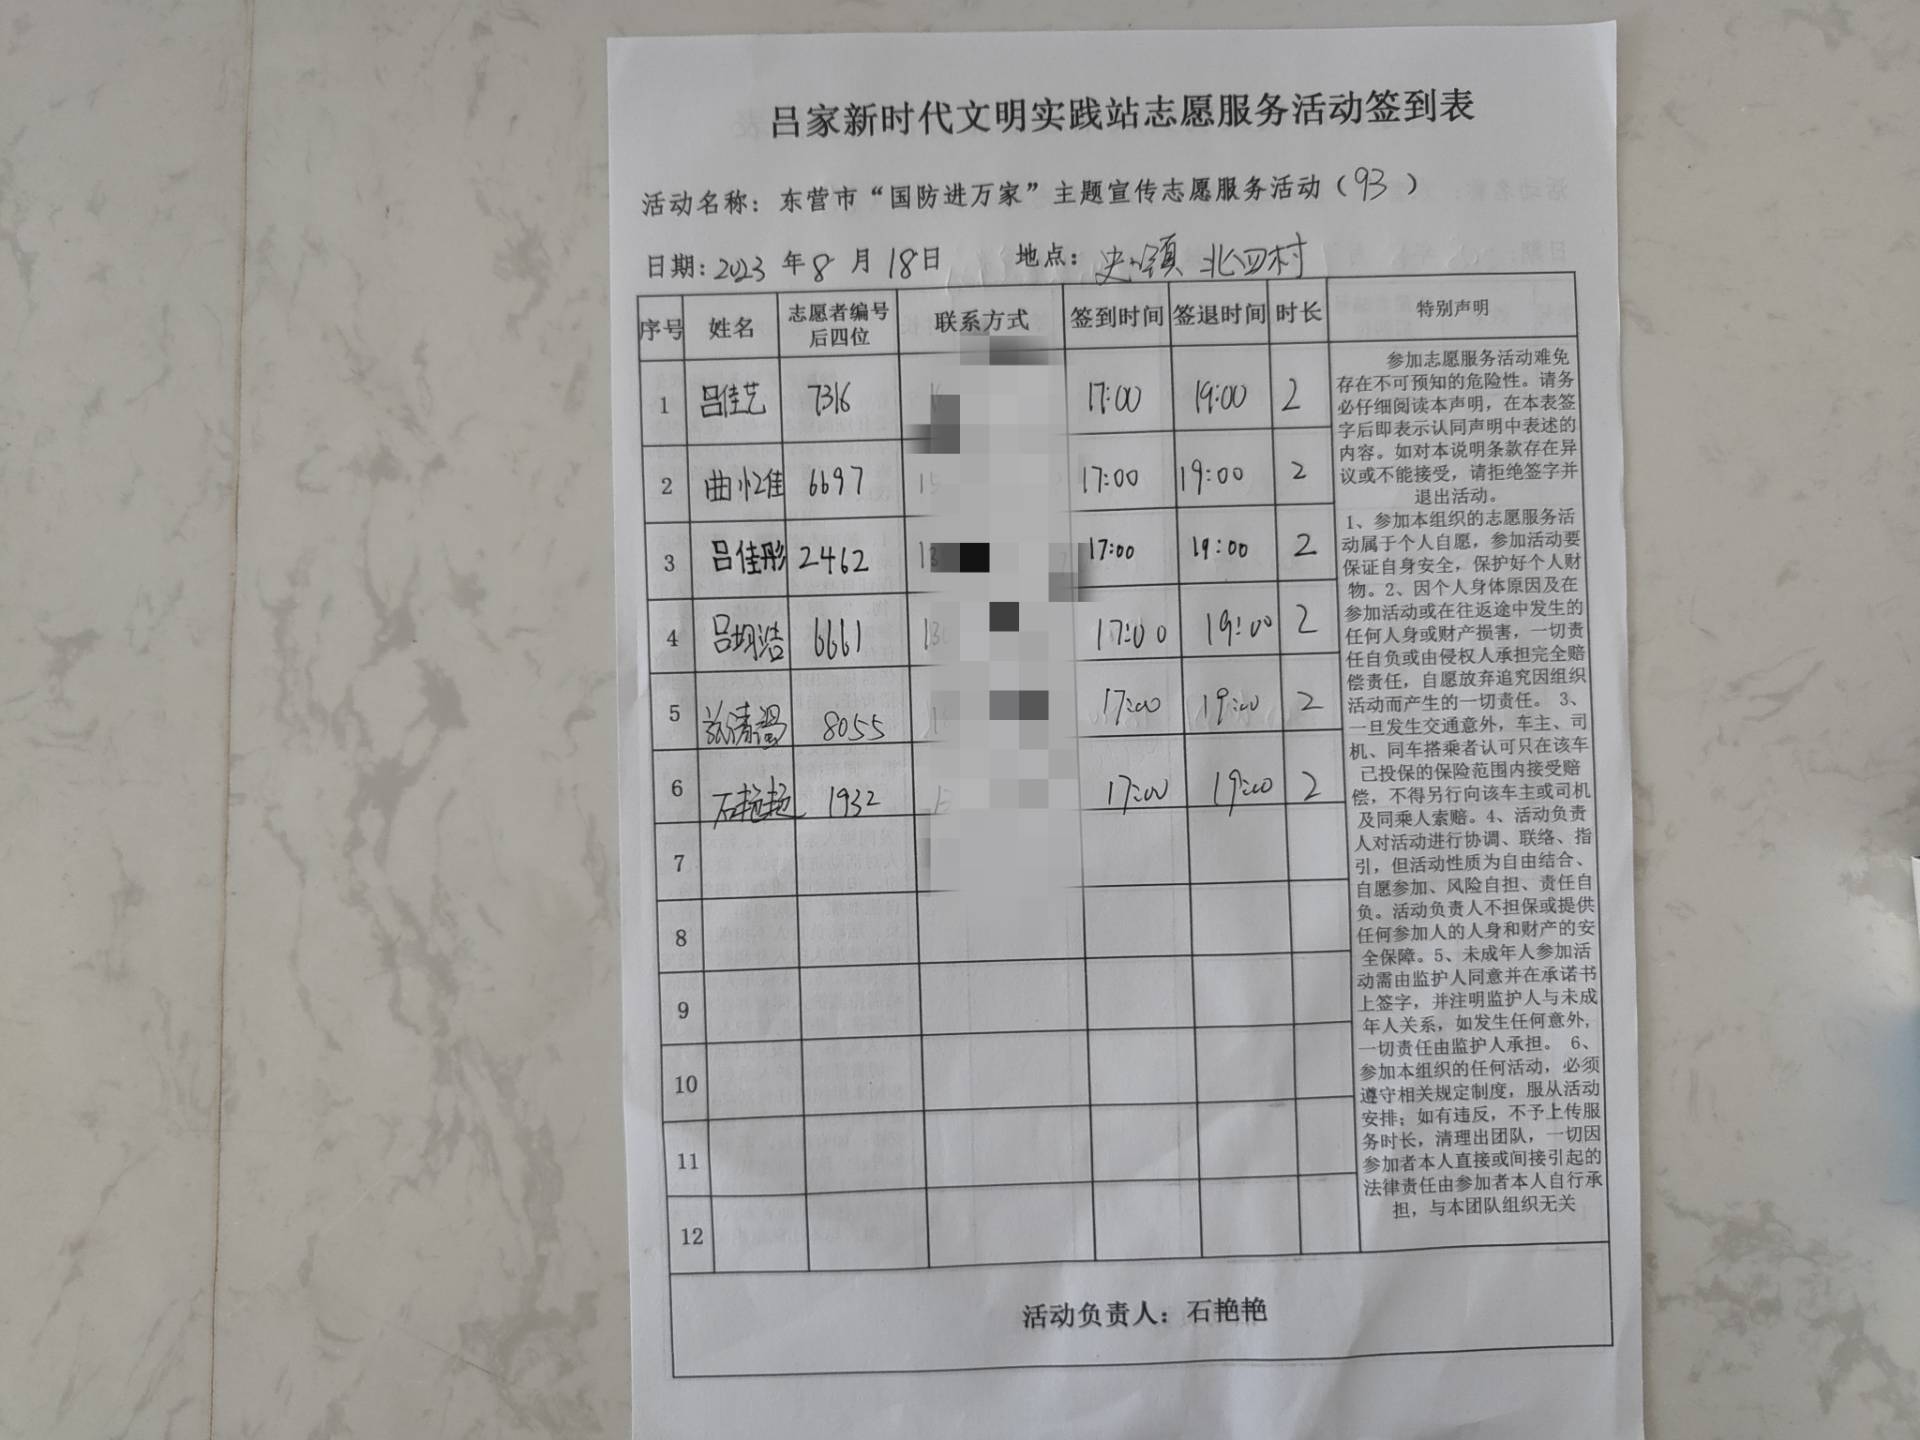 吕家新时代文明实践站志愿服务活动签到表
活动名称：东营市“国防进万家”主题宣传志愿服务活动（93）
日期：2023 年 8 月 18日 地点：史口镇 北四村
序号 姓名 志愿者编号后四位 联系方式 签到时间 签退时间 时长 特别声明
1 吕佳艺 7316 17:00 19:00 2
2 曲 佳 6697 17:00 19:00 2
3 吕佳彤 2462 17:00 19:00 2
4 吕 浩 6661 17:00 19:00 2
5 清 8055 17:00 19:00 2
6 石艳艳 1932 17:00 19:00 2
7
8
9
10
11
12
参加志愿服务活动难免
存在不可预知的危险性。请务
必仔细阅读本声明，在本表签
字后即表示认同声明中表述的
内容。如对本说明条款存在异
议或不能接受，请拒绝签字并
退出活动。
1、参加本组织的志愿服务活
动属于个人自愿，参加活动要
保证自身安全，保护好个人财
物。2、因个人身体原因及在
参加活动或在往返途中发生的
任何人身或财产损害，一切责
任自负或由侵权人承担完全赔
偿责任，自愿放弃追究因组织
活动而产生的一切责任。 3、
一旦发生交通意外，车主、司
机、同车搭乘者认可只在该车
已投保的保险范围内接受赔
偿，不得另行向该车主或司机
及同乘人索赔。4、活动负责
人对活动进行协调、联络、指
引，但活动性质为自由结合、
自愿参加、风险自担、责任自
负。活动负责人不担保或提供
任何参加人的人身和财产的安
全保障。5、未成年人参加活
动需由监护人同意并在承诺书
上签字，并注明监护人与未成
年人关系，如发生任何意外，
一切责任由监护人承担。 6、
参加本组织的任何活动，必须
遵守相关规定制度，服从活动
安排；如有违反，不予上传服
务时长，清理出团队，一切因
参加者本人直接或间接引起的
法律责任由参加者本人自行承
担，与本团队组织无关
活动负责人：石艳艳